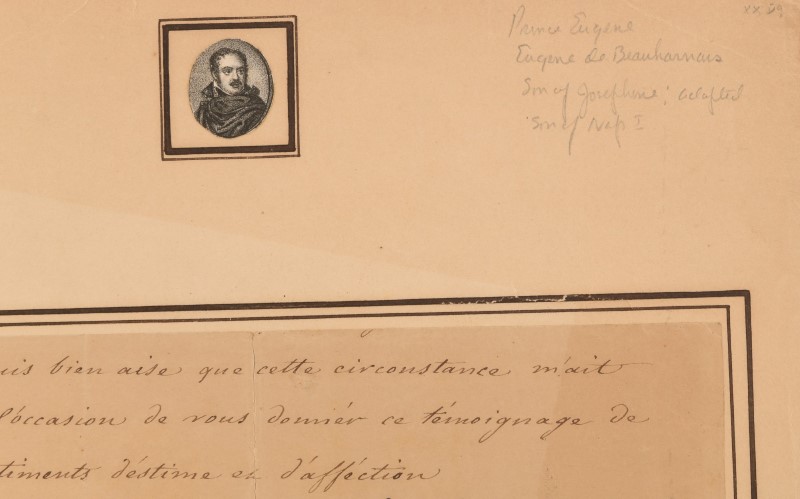 Prince Eugène
Eugène de Beauharnais
Son of Josephine; adopted
Son of Nap I
uis bien aise que cette circonstance m'ait
l'occasion de vous donnér ce témoignage de
timents d'éstime et d'afféction